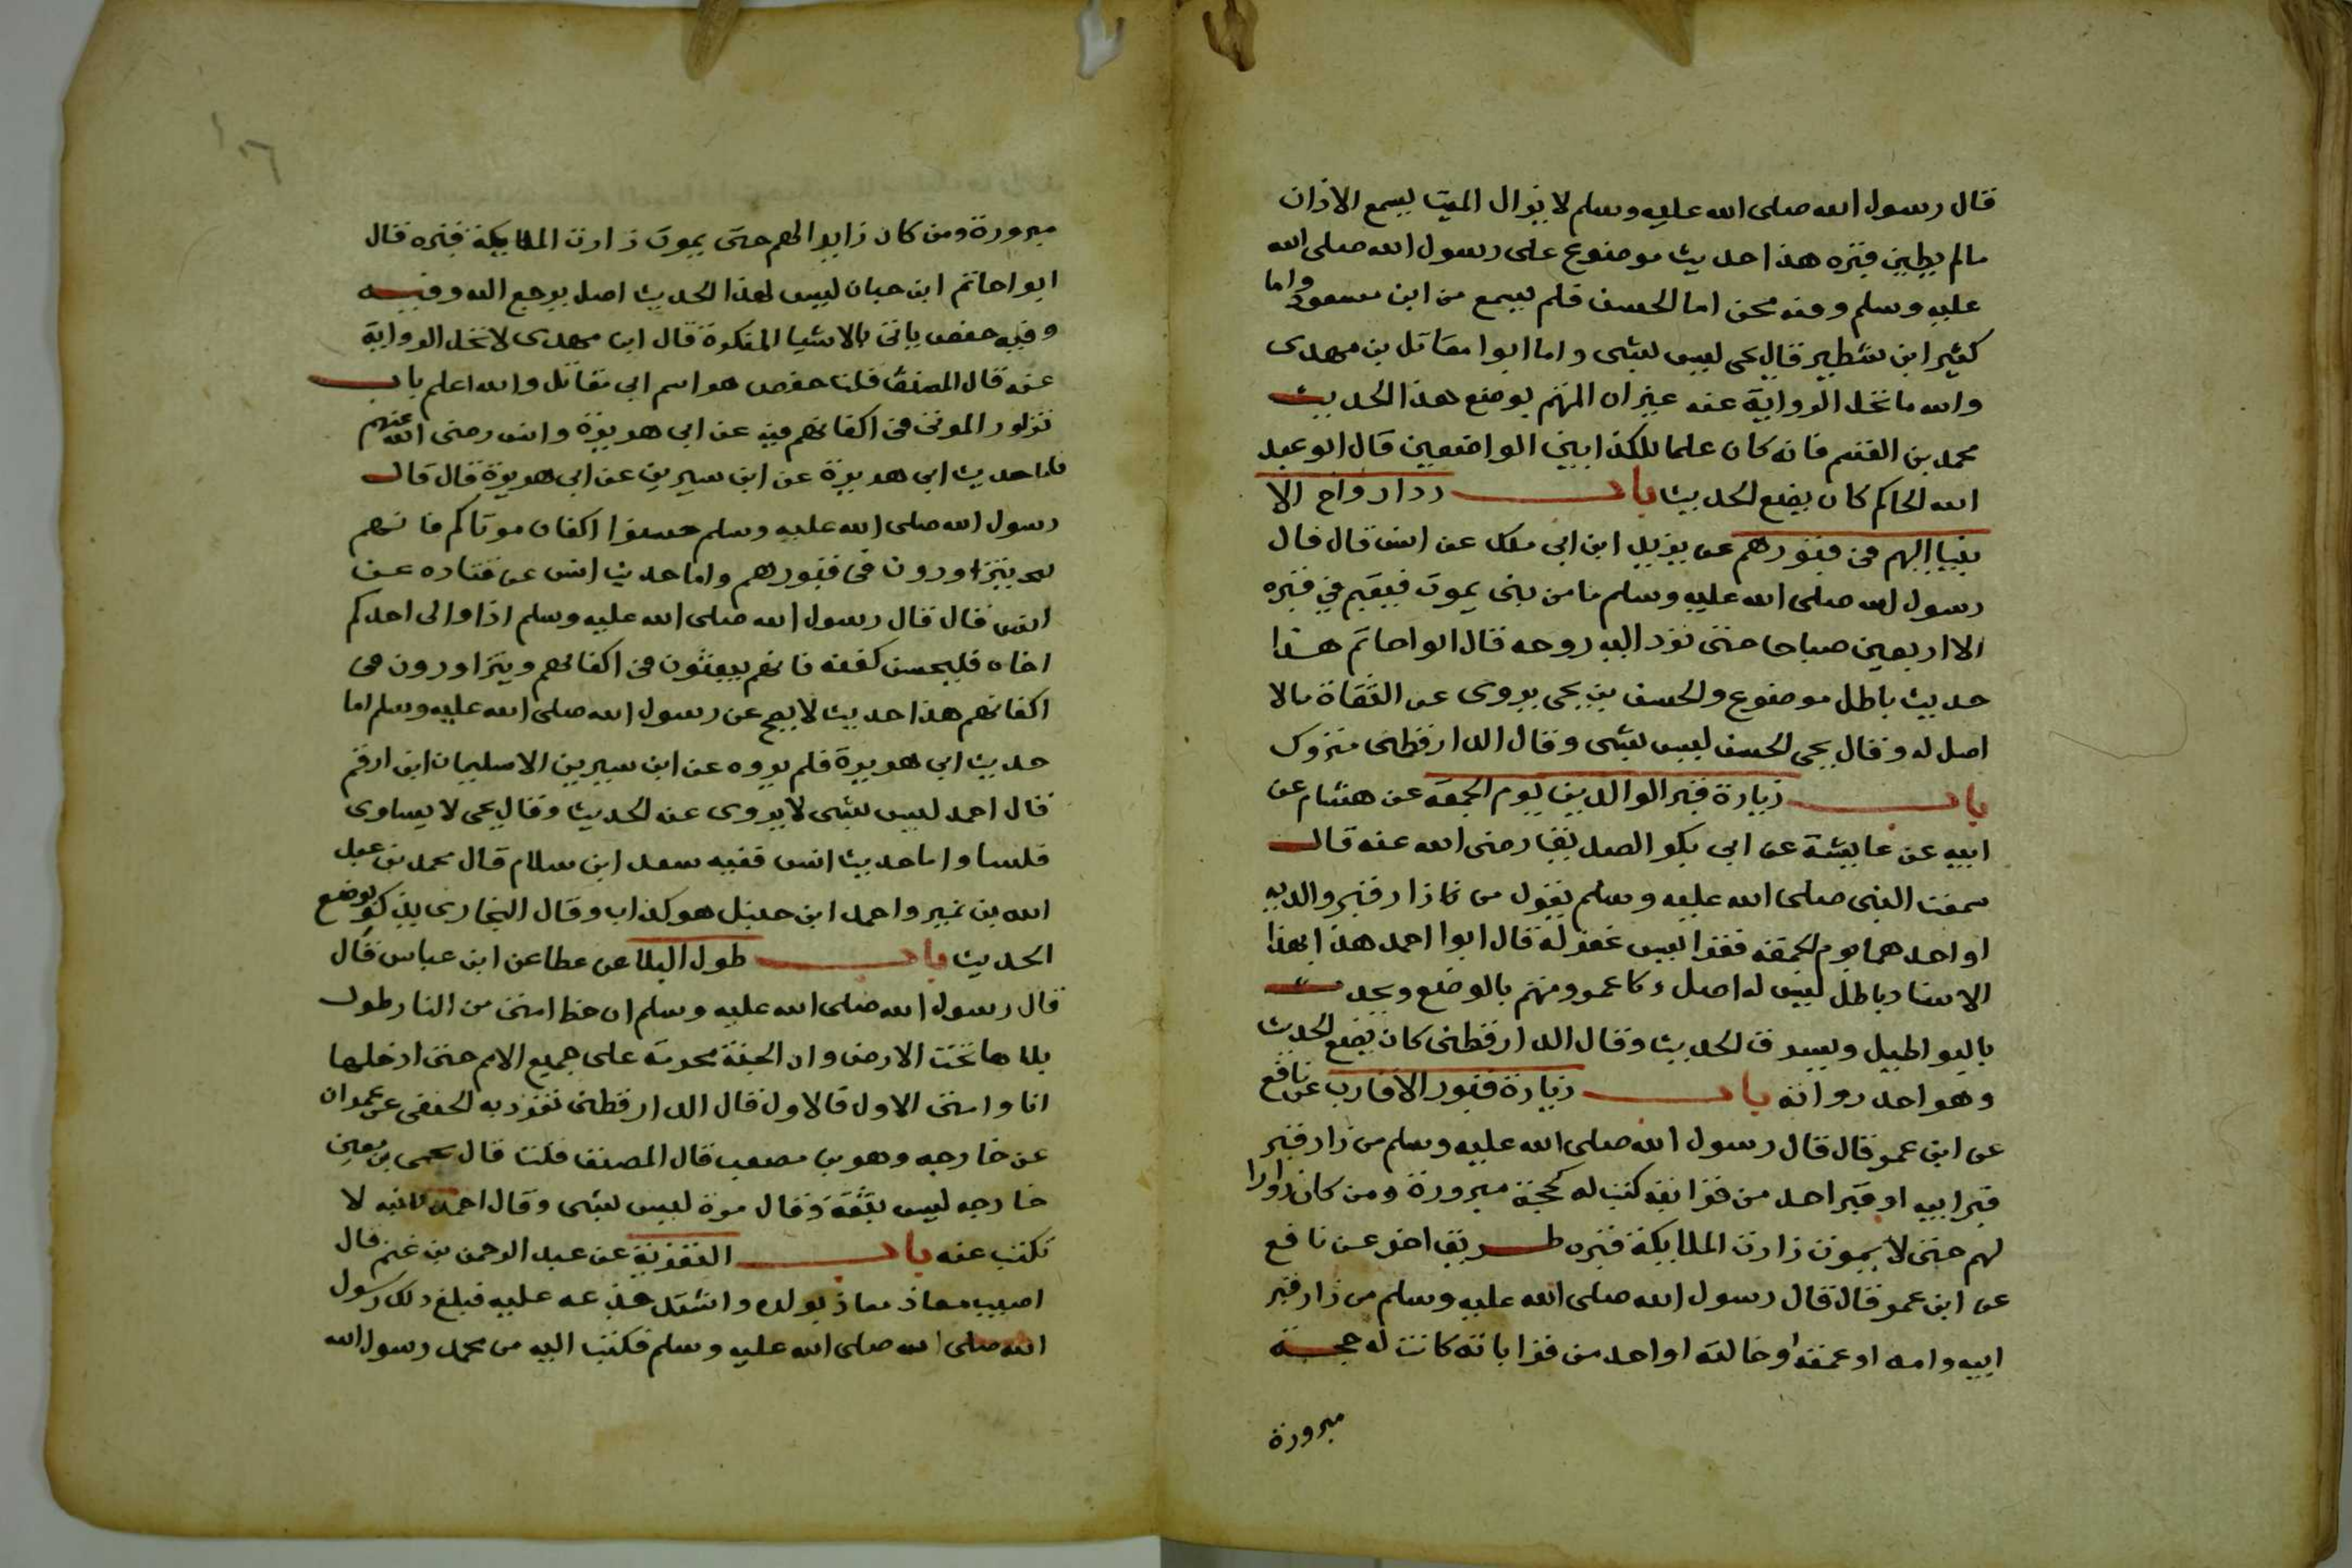 قال رسول الله صلى الله عليه وسلم لا يزال الميت يسمع الاذان
مالم يطين قبره هذا حديث موضوع على رسول الله صلى الله
عليه وسلم وفيه محن اما الحسن فلم يسمع من ابن مسعود واما
كثير ابن شنطير قال يحى ليس بشى واما ابوا مقاتل بن مهدى
والله ما تحل الرواية عنه غير ان المتهم بوضع هذا الحديث
محمد بن القسم فانه كان علما للكذابين الواضعين قال ابو عبد
الله الحاكم كان يضع الحديث باب رد ارواح الا
نبيا اليهم فى قبورهم عن يزيد ابن ابى ملك عن انس قال قال
رسول الله صلى الله عليه وسلم ما من بنى يموت فيقيم فى قبره
الا اربعين صباحا حتى ترد اليه روحه قال ابوا حاتم هذا
حديث باطل موضوع والحسن بن يحى يروى عن الثقاة مالا
اصل له وقال يحى الحسن ليس بشى وقال الدارقطنى متروك
باب زيارة قبر الوالدين يوم الجمعة عن هشام عن
ابيه عن عايشة عن ابى بكر الصديق رضى الله عنه قال
سمعت النبى صلى الله عليه وسلم يقول من زار قبر والديه
او احدهما يوم الجمعة فقرا يس غفر له قال ابوا احمد هذا بهذا
الاسناد باطل ليس له اصل وعمرو متهم بالوضع ويحدث
بالبواطيل ويسرق الحديث وقال الدارقطنى كان يضع الحديث
وهو احد رواته باب زيارة قبور الاقارب عن نافع
عن ابن عمر قال قال رسول الله صلى الله عليه وسلم من زار قبر
قبر ابيه او قبر احد من قرابته كتب له كحجة مبرورة ومن كان زوارا
لهم حتى لا يموت زارت الملايكة قبره طريق اخر عن نافع
عن ابن عمر قال قال رسول الله صلى الله عليه وسلم من زار قبر
ابيه وامه او عمته او خالته او احد من قراباته كانت له حجة
مبرورة
مبرورة ومن كان زايرا لهم حتى يموت زارت الملايكة قبره قال
ابوا حاتم ابن حبان ليس لهذا الحديث اصل يرجع اليه وفيه
وفيه حفص ياتى بالاشيا المنكرة قال ابن مهدى لا تحل الرواية
عنه قال المصنف قلت حفص هو اسم ابى مقاتل والله اعلم باب
تزاور الموتى فى اكفانهم فيه عن ابى هريرة وانس رضى الله عنهم
فاما حديث ابى هريرة عن ابن سيرين عن ابى هريرة قال قال
رسول الله صلى الله عليه وسلم حسنوا اكفان موتاكم فانهم
يتزاورون فى قبورهم واما حديث انس عن قتاده عن
انس قال قال رسول الله صلى الله عليه وسلم اذا والى احدكم
اخاه فليحسن كفنه فانهم يبعثون فى اكفانهم ويتزاورون فى
اكفانهم هذا حديث لا يصح عن رسول الله صلى الله عليه وسلم اما
حديث ابى هريرة فلم يروه عن ابن سيرين الا سليمان ابن ارقم
قال احمد ليس بشى لا يروى عنه الحديث وقال يحى لا يساوى
فلسا واما حديث انس ففيه سعد ابن سلام قال محمد بن عبد
الله بن نمير واحمد ابن حنبل هو كذاب وقال البخارى يذكر بوضع
الحديث باب طول البلا عن عطا عن ابن عباس قال
قال رسول الله صلى الله عليه وسلم ان حظ امتى من النار طول
بلاها تحت الارض وان الجنة محرمة على جميع الامم حتى ادخلها
انا وامتى الاول فالاول قال الدارقطنى تفرد به الحنفى عن عمران
عن خارجه وهو بن مصعب قال المصنف قلت قال يحى بن معين
خارجه ليس بثقة وقال مرة ليس بشى وقال احمد لابنه لا
تكتب عنه باب التعزية عن عبد الرحمن بن غنم قال
اصيب معاذ بولده واشتد جزعه عليه فبلغ ذلك رسول
الله صلى الله صلى الله عليه وسلم فكتب اليه من محمد رسول الله